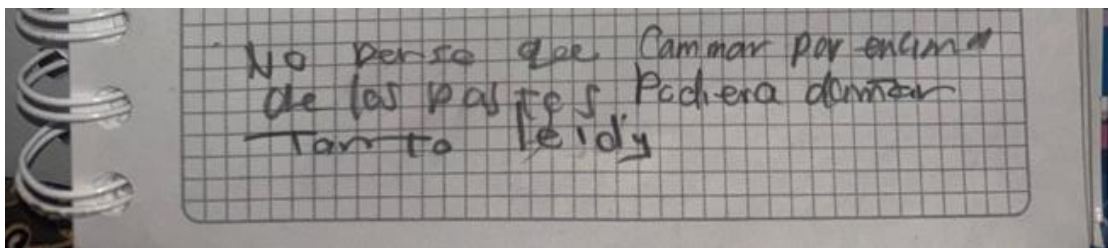 No pense que Cammar por encima
de los pastes Pudiera dañar
Tanto leidy